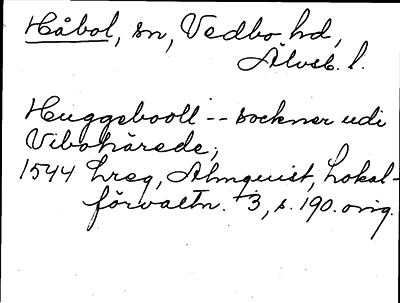 Håbol, sn, Vedbo hd,
Älvsb. l.
Huggebooll -- sockner udi
Vibohärede,
1544 hreg, Almquist, Lokal-
förvaltn. 3, s. 190. orig.